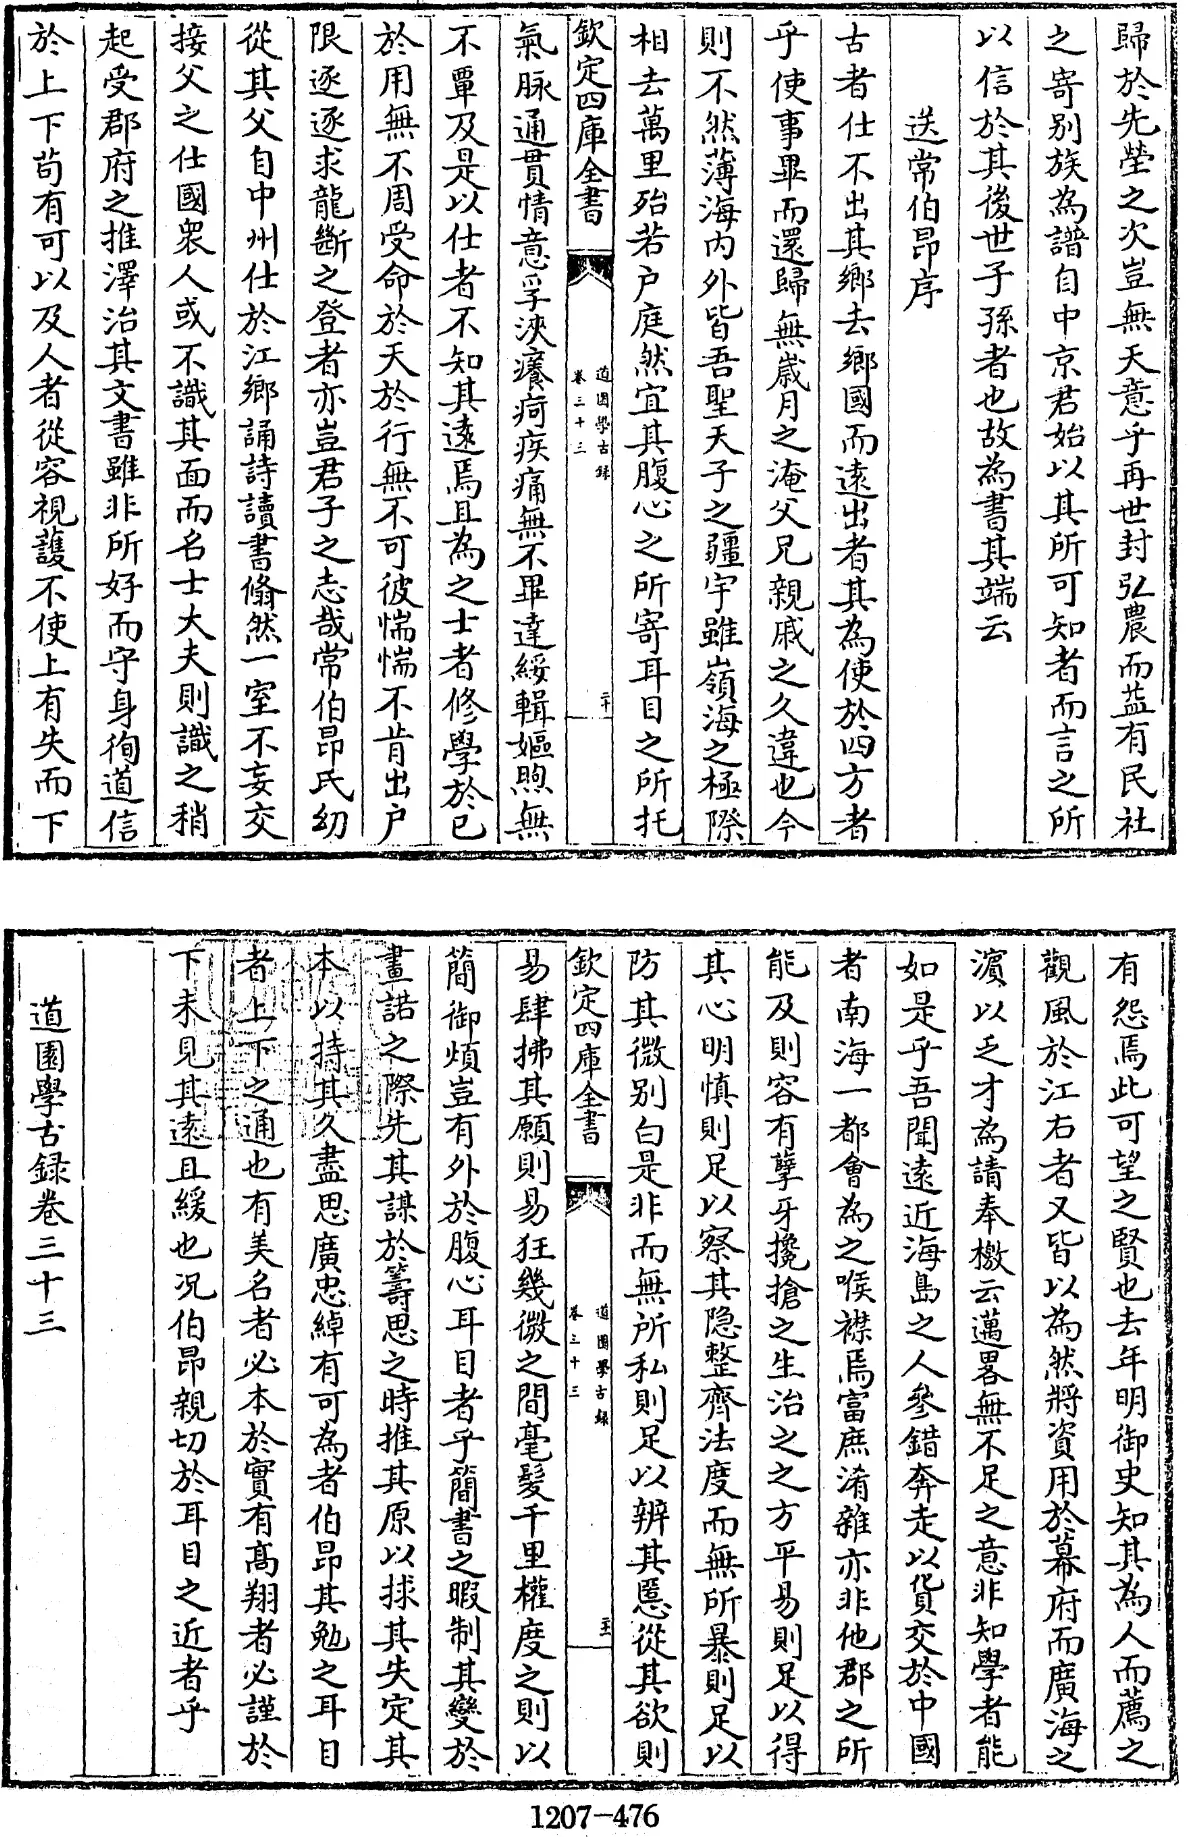 歸於先塋之次豈無天意乎再世封弘農而葢有民社
之寄别族為譜自中京君始以其所可知者而言之所
以信於其後世子孫者也故為書其端云
送常伯昂序
古者仕不出其鄉去鄉國而遠出者其為使於四方者
乎使事畢而還歸無嵗月之淹父兄親戚之久違也今
則不然薄海内外皆吾聖天子之疆宇雖嶺海之極際
相去萬里殆若户庭然宜其腹心之所寄耳目之所托
欽定四庫全書
道園學古録
卷三十三
二十
氣脉通貫情意孚浹癢疴疾痛無不畢達綏輯嫗煦無
不覃及是以仕者不知其遠焉且為之士者修學於已
於用無不周受命於天於行無不可彼惴惴不肯出户
限逐逐求龍斷之登者亦豈君子之志哉常伯昂氏幼
從其父自中州仕於江鄉誦詩讀書翛然一室不妄交
接父之仕國衆人或不識其面而名士大夫則識之稍
起受郡府之推澤治其文書雖非所好而守身徇道信
於上下苟有可以及人者從容視護不使上有失而下
有怨焉此可望之賢也去年明御史知其為人而薦之
觀風於江右者又皆以為然將資用於幕府而廣海之
濵以乏才為請奉檄云邁畧無不足之意非知學者能
如是乎吾聞遠近海島之人參錯奔走以貨交於中國
者南海一都會為之喉襟焉富庶淆雜亦非他郡之所
能及則容有孽牙攙搶之生治之之方平易則足以得
其心明慎則足以察其隐整齊法度而無所暴則足以
防其微别白是非而無所私則足以辨其慝從其欲則
欽定四庫全書
道園學古録
卷三十三
易肆拂其願則易狂幾微之間毫髮千里權度之則以
簡御煩豈有外於腹心耳目者乎簡書之暇制其變於
畫諾之際先其謀於籌思之時推其原以捄其失定其
本以持其久盡思廣忠綽有可為者伯昂其勉之耳目
者上下之通也有美名者必本於實有髙翔者必謹於
下未見其遠且緩也况伯昂親切於耳目之近者乎
道園學古録卷三十三
1207-476